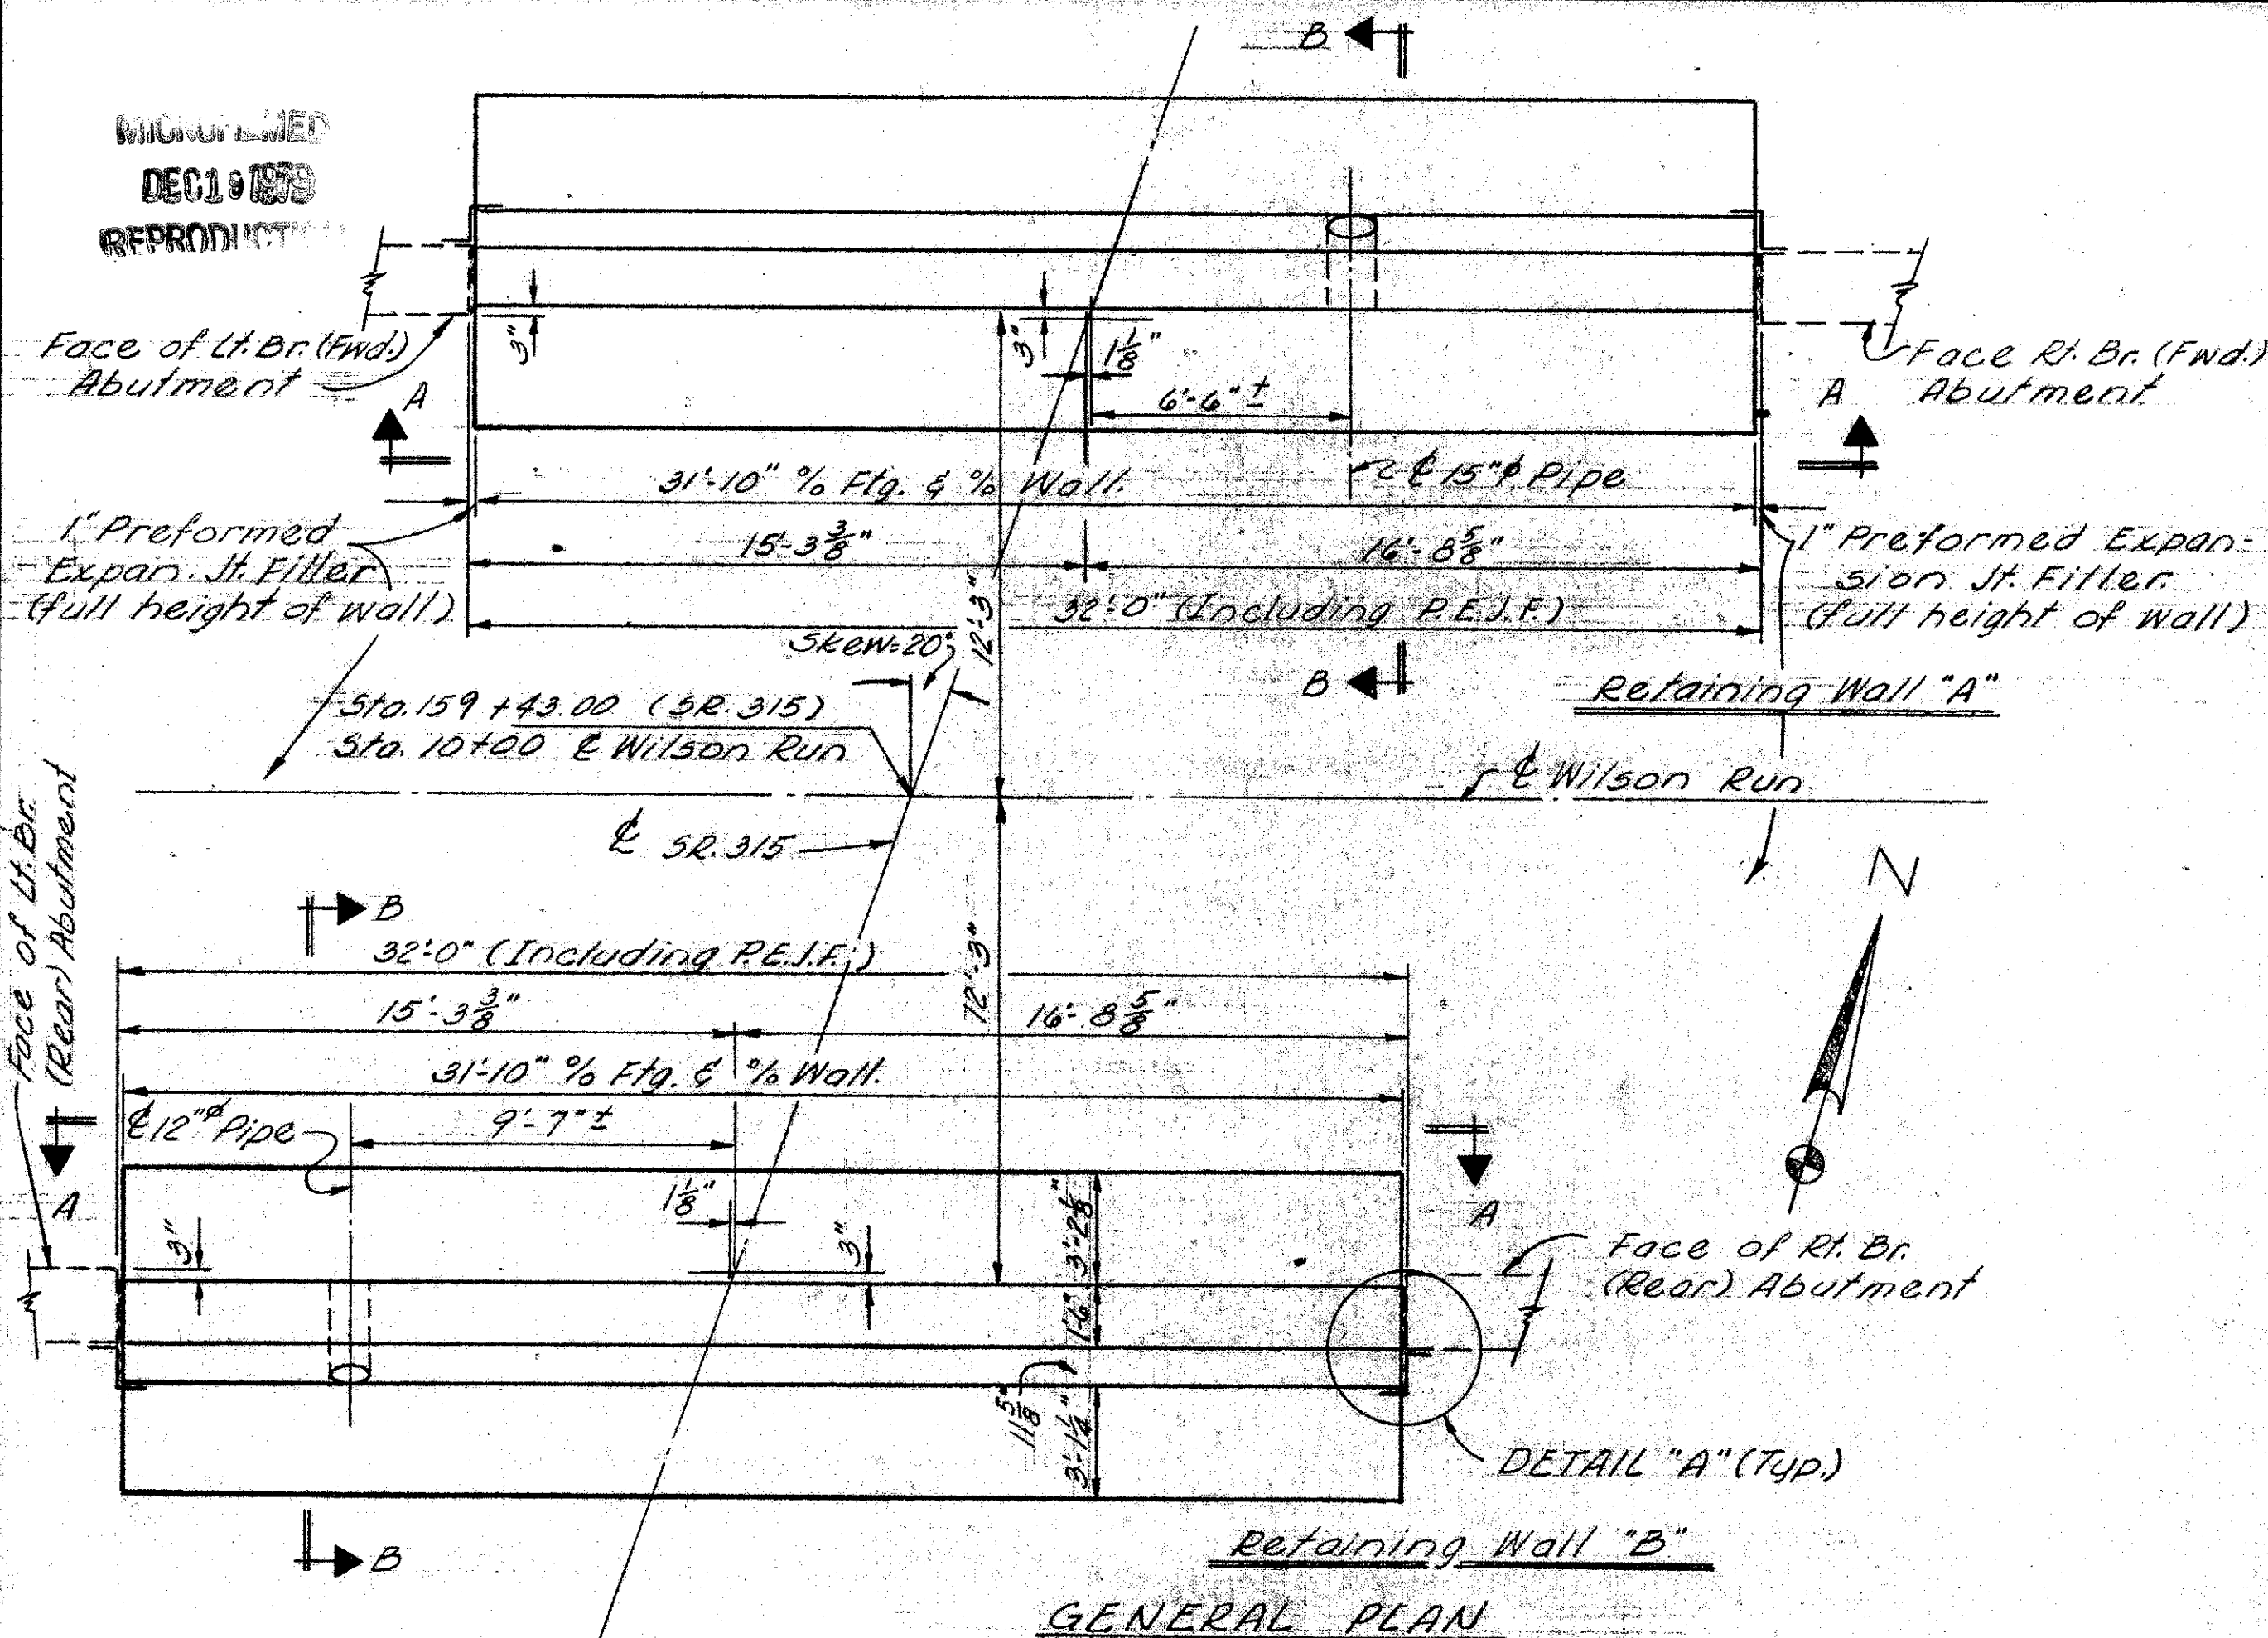 B
MICROFILMED
DEC 19 1979
REPRODUCTION
Face of Lt. Br. (Fwd.)
Abutment
3"
3"
1 1/8"
6'-6" ±
Face Rt. Br. (Fwd.)
Abutment
A
A
31'-10" % Ftg. & % Wall.
℄ 15"ø Pipe
1" Preformed
Expan. Jt. Filler
(full height of wall)
15'-3 3/8"
16'-8 5/8"
1" Preformed Expan-
sion Jt. Filler.
(full height of wall)
32'-0" (Including P.E.J.F.)
12'-3"
Skew=20°
B
Retaining Wall "A"
Sta. 159 +43.00 (SR. 315)
Sta. 10+00 ℄ Wilson Run
℄ Wilson Run
℄ SR. 315
N
Face of Lt. Br.
(Rear) Abutment
B
32'-0" (Including P.E.J.F.)
12'-3"
15'-3 3/8"
16'-8 5/8"
31'-10" % Ftg. & % Wall.
℄ 12"ø Pipe
9'-7" ±
A
A
1 1/8"
3"
3"
3'-2 1/8"
1'-6"
11 5/8"
3'-1 1/4"
Face of Rt. Br.
(Rear) Abutment
DETAIL "A" (Typ.)
B
Retaining Wall "B"
GENERAL PLAN